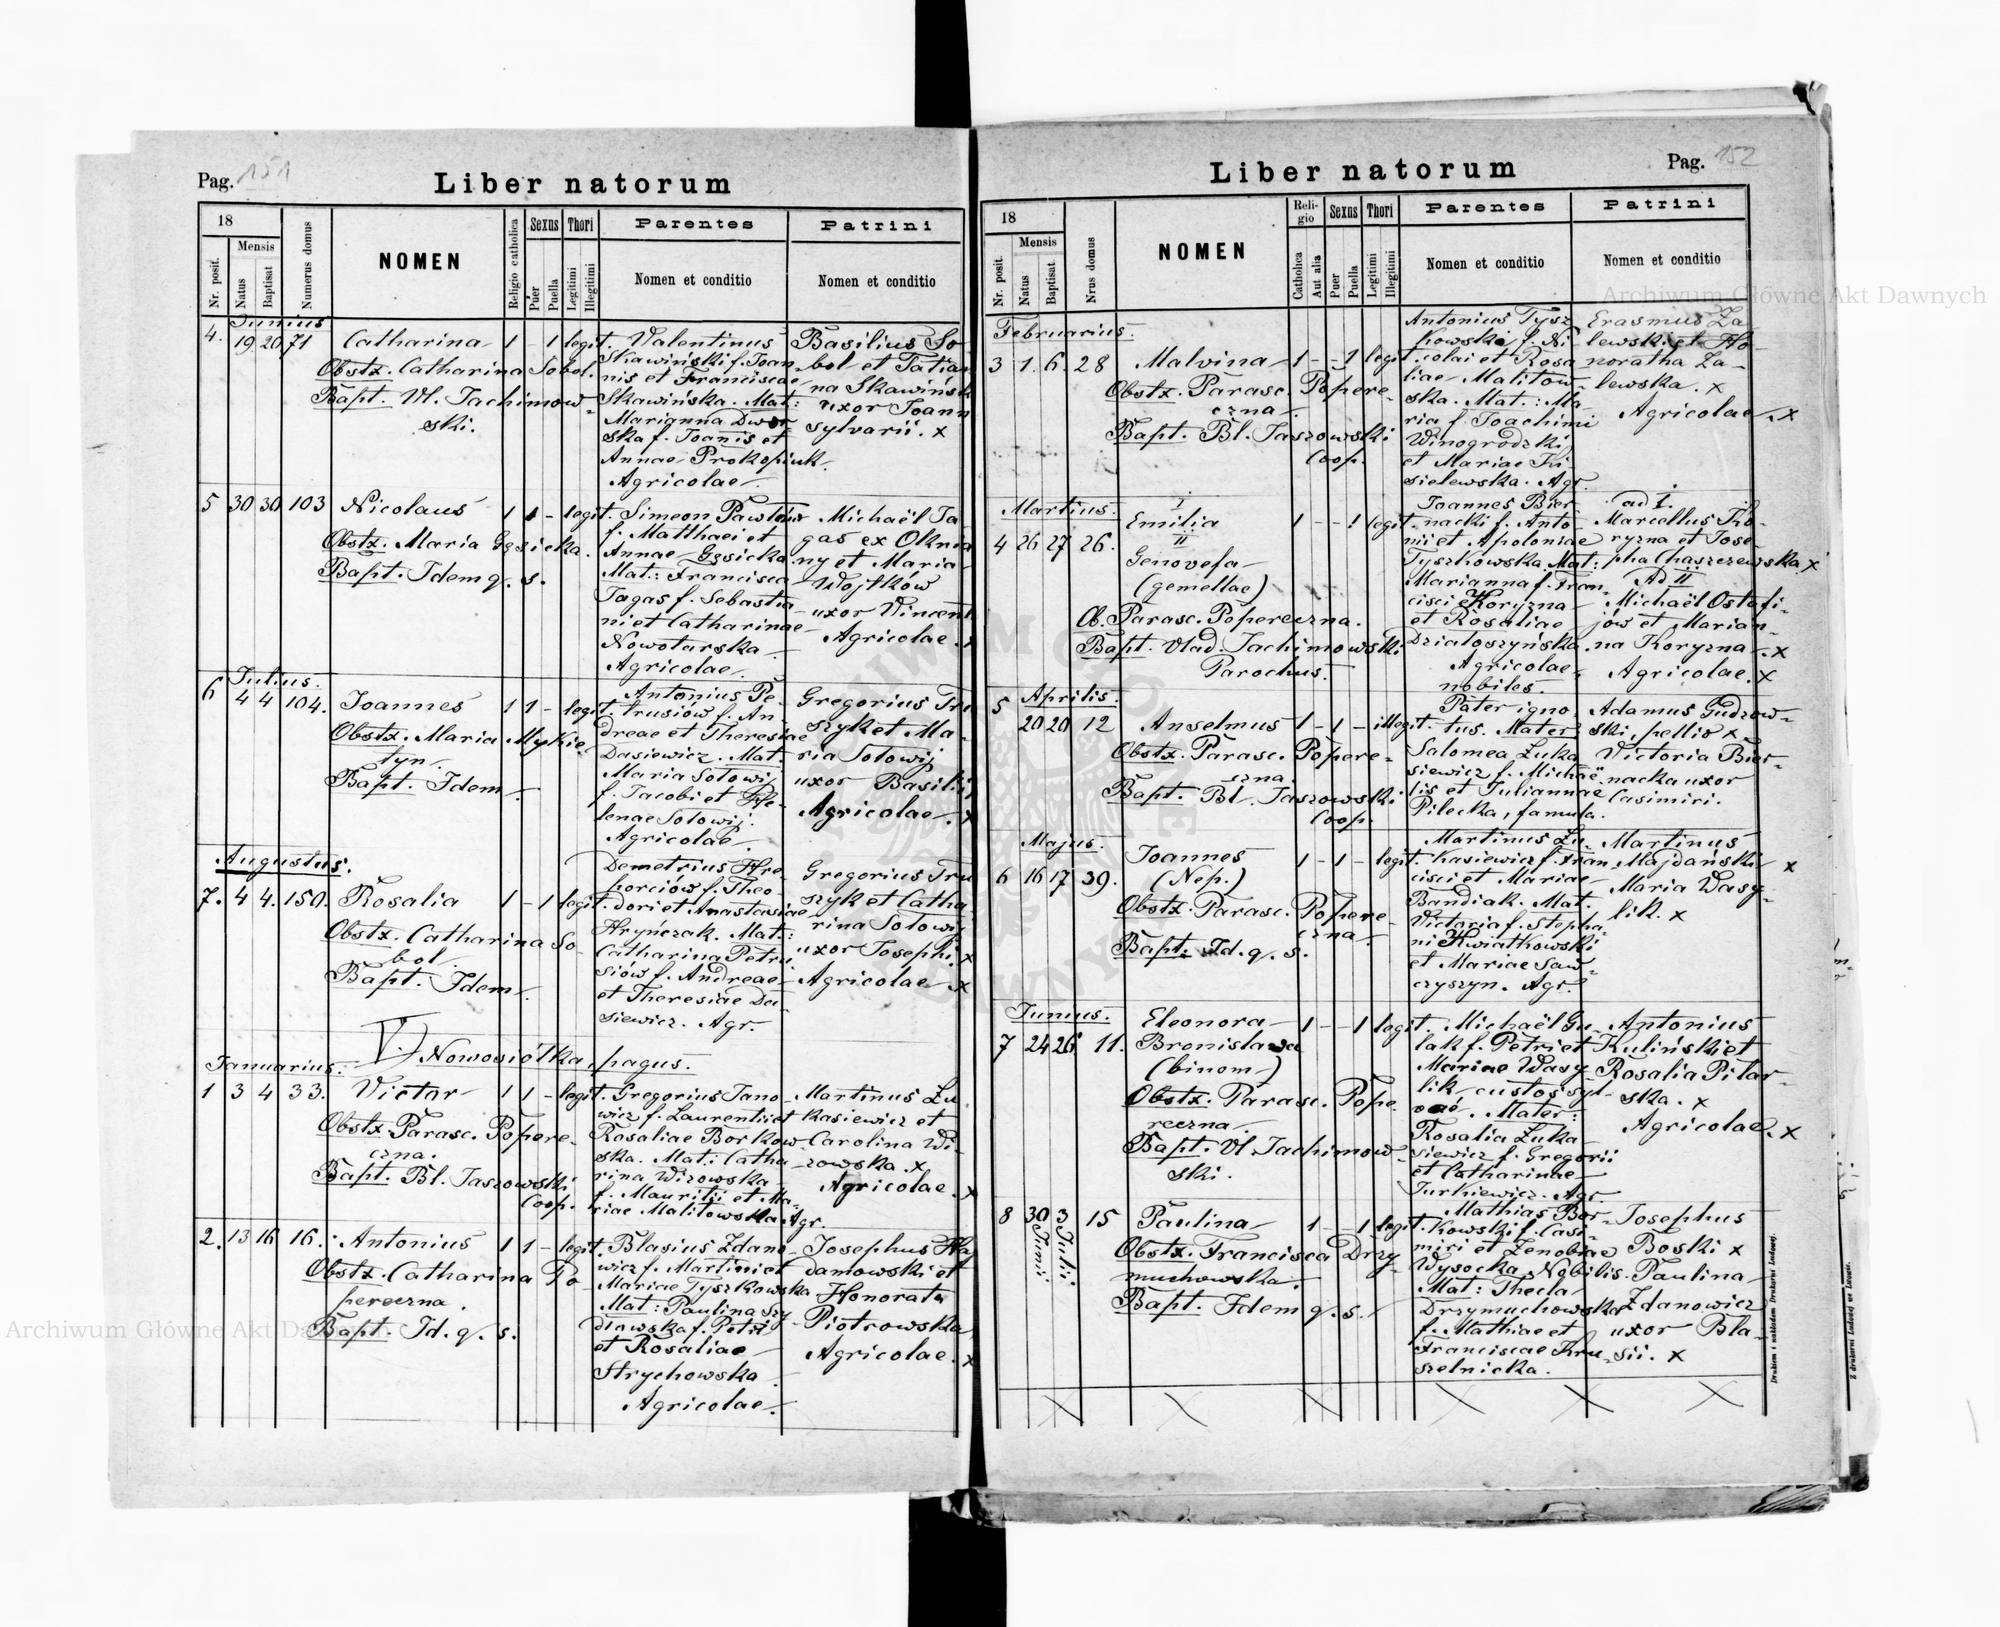 Pag. 151
Liber natorum
18
Mensis
Nr. posit.
Natus
Baptisat
Numerus domus
NOMEN
Religio catholica
Sexus
Puer
Puella
Thori
Legitimi
Illegitimi
Parentes
Nomen et conditio
Patrini
Nomen et conditio
Junius
4. 19. 20. 71 Catharina 1 - 1 legit.
Obstx. Catharina Sobol.
Bapt. Vl. Jachimow-
ski.
Valentinus
Skawiński f. Joan
nis et Franciscae
Skawińska. Mat:
Marianna Dwor
ska f. Joanis et
Annae Prokopiuk.
Agricolae.
Basilius So-
bol et Tatia
na Skawińsk
uxor Joann
sylvarii. x
5 30 30 103 Nicolaus 1 1 - legit.
Obstx. Maria Gęsicka.
Bapt. Idem q. s.
Simeon Pawłów
f. Matthaei et
Annae Gęsicka
Mat: Francisca
Tagas f. Sebastia
ni et Catharinae
Nowotarska
Agricolae.
Michaël Ta-
gas ex Oknia
ny et Maria
Wojtków
uxor Vincent
Agricolae. x
Julius.
6 4 4 104. Joannes 1 1 - legit.
Obstx. Maria Mykie
tyn.
Bapt. Idem.
Antonius Pe-
trusiów f. An-
dreae et Theresiae
Dasiewicz. Mat.
Maria Sołowij
f. Jacobi et He-
lenae Sołowij.
Agricolae.
Gregorius Tru
szyk et Ma-
ria Sołowij
uxor Basilii
Agricolae. x
Augustus.
7. 4 4. 150. Rosalia 1 - 1 legit.
Obstx. Catharina So
bol.
Bapt. Idem.
Demetrius Hre-
horciów f. Theo-
dori et Anastasiae
Hryńczak. Mat:
Catharina Petru
siów f. Andreae
et Theresiae Da
siewicz. Agr.
Gregorius Tru
szyk et Catha
rina Sołowij
uxor Josephi. x
Agricolae x
V.) Nowosiółka, pagus.
Januarius.
1 3 4 33. Victor 1 1 - legit.
Obstx Parasc. Popere-
czna.
Bapt. Bl. Jaszowski
Coop.
Gregorius Jano-
wicz f. Laurentii et
Rosaliae Borkow-
ska. Mat: Catha-
rina Wizowska
f. Mauritii et Ma-
riae Malitowska Agr.
Martinus Łu
kasiewicz et
Carolina Wi-
zowska. x
Agricolae. x
2. 13 16 16. Antonius 1 1 - legit.
Obstx. Catharina Po
pereczna.
Bapt. Id. q. s.
Blasius Zdano-
wicz f. Martini et
Mariae Tyszkowska
Mat: Paulina Szy
dłowska f. Petri
et Rosaliae
Strychowska
Agricolae.
Josephus
damowski et
Honorata
Piotrowska
Agricolae. x
Pag. 152
Liber natorum
18
Mensis
Nr. posit.
Natus
Baptisat.
Nrus domus
NOMEN
Reli-
gio
Catholica
Aut alia
Sexus
Puer
Puella
Thori
Legitimi
Illegitimi
Parentes
Nomen et conditio
Patrini
Nomen et conditio
Februarius.
3 1. 6. 28 Malvina 1 - - 1 legit.
Obstx. Parasc. Popere-
czna.
Bapt. Bl. Jaszowski
Coop.
Antonius Tysz
kowski f. Ni
colai et Rosa
liae Malitow-
ska. Mat.: Ma
ria f. Joachimi
Winogrodzki
et Mariae Ki-
sielewska. Agr.
Erasmus Za
lewski et Ho-
noratha Za-
lewska. x
Agricolae. x
Martius.
4 26 27 26. I
Emilia 1 - - 1 legit.
II
Genovefa
(gemellae)
Ob. Parasc. Popereczna.
Bapt. Vlad. Jachimowski
Parochus.
Joannes Bier-
nacki f. Anto-
nii et Apoloniae
Tyszkowska Mat:
Marianna f. Fran-
cisci Koryzna
et Rosaliae
Działoszyńska.
Agricolae
nobiles.
ad I.
Marcellus Ko-
ryzna et Jose-
pha Chaszczewska x
Ad II
Michaël Ostafi-
jów et Marian-
na Koryzna x
Agricolae. x
Aprilis.
5 20 20 12 Anselmus 1 - 1 - illegit.
Obstx. Parasc. Popere-
czna.
Bapt. Bl. Jaszowski
Coop.
Pater igno-
tus. Mater
Salomea Łuka
siewicz f. Michaë
lis et Juliannae
Pilecka, famula.
Adamus Gudzow-
ski, pellio x
Victoria Bier-
nacka uxor
Casimiri.
Majus.
6 16 17 39. Joannes 1 - 1 - legit.
(Nep.)
Obstx. Parasc. Popere-
czna.
Bapt. Id. q. s.
Martinus Łu-
kasiewicz f. Fran
cisci et Mariae
Bandiak. Mat.
Victoria f. Stepha-
ni Kwiatkowski
et Mariae Saw-
czyszyn. Agr.
Martinus
Majdański x
Maria Wasy-
lik. x
Junius.
7 24 26 11. Eleonora 1 - - 1 legit.
Bronislava
(binom)
Obstx. Parasc. Pope
reczna.
Bapt. Vl Jachimow-
ski.
Michaël Gu-
lak f. Petri et
Mariae Wasy-
lik custos syl-
vae. Mater:
Rosalia Łuka-
siewicz f. Gregorii
et Catharinae
Jurkiewicz. Agr.
Antonius
Kuliński et
Rosalia Pilar-
ska. x
Agricolae. x
8 30 Junii 3 Julii 15 Paulina 1 - - 1 legit.
Obstx. Francisca Drzy-
muchowska.
Bapt. Idem q. s.
Mathias Bor-
kowski f. Casi-
miri et Zenobiae
Wysocka Nobilis.
Mat: Thecla
Drzymuchowska
f. Mathiae et
Franciscae Kru-
szelnicka.
Josephus
Boski x
Paulina
Zdanowicz
uxor Bla-
sii. x
Drukiem i nakładem Drukarni Ludowej.
Z drukarni Ludowej we Lwowie.
Archiwum Główne Akt Dawnych
Archiwum Główne Akt Dawnych